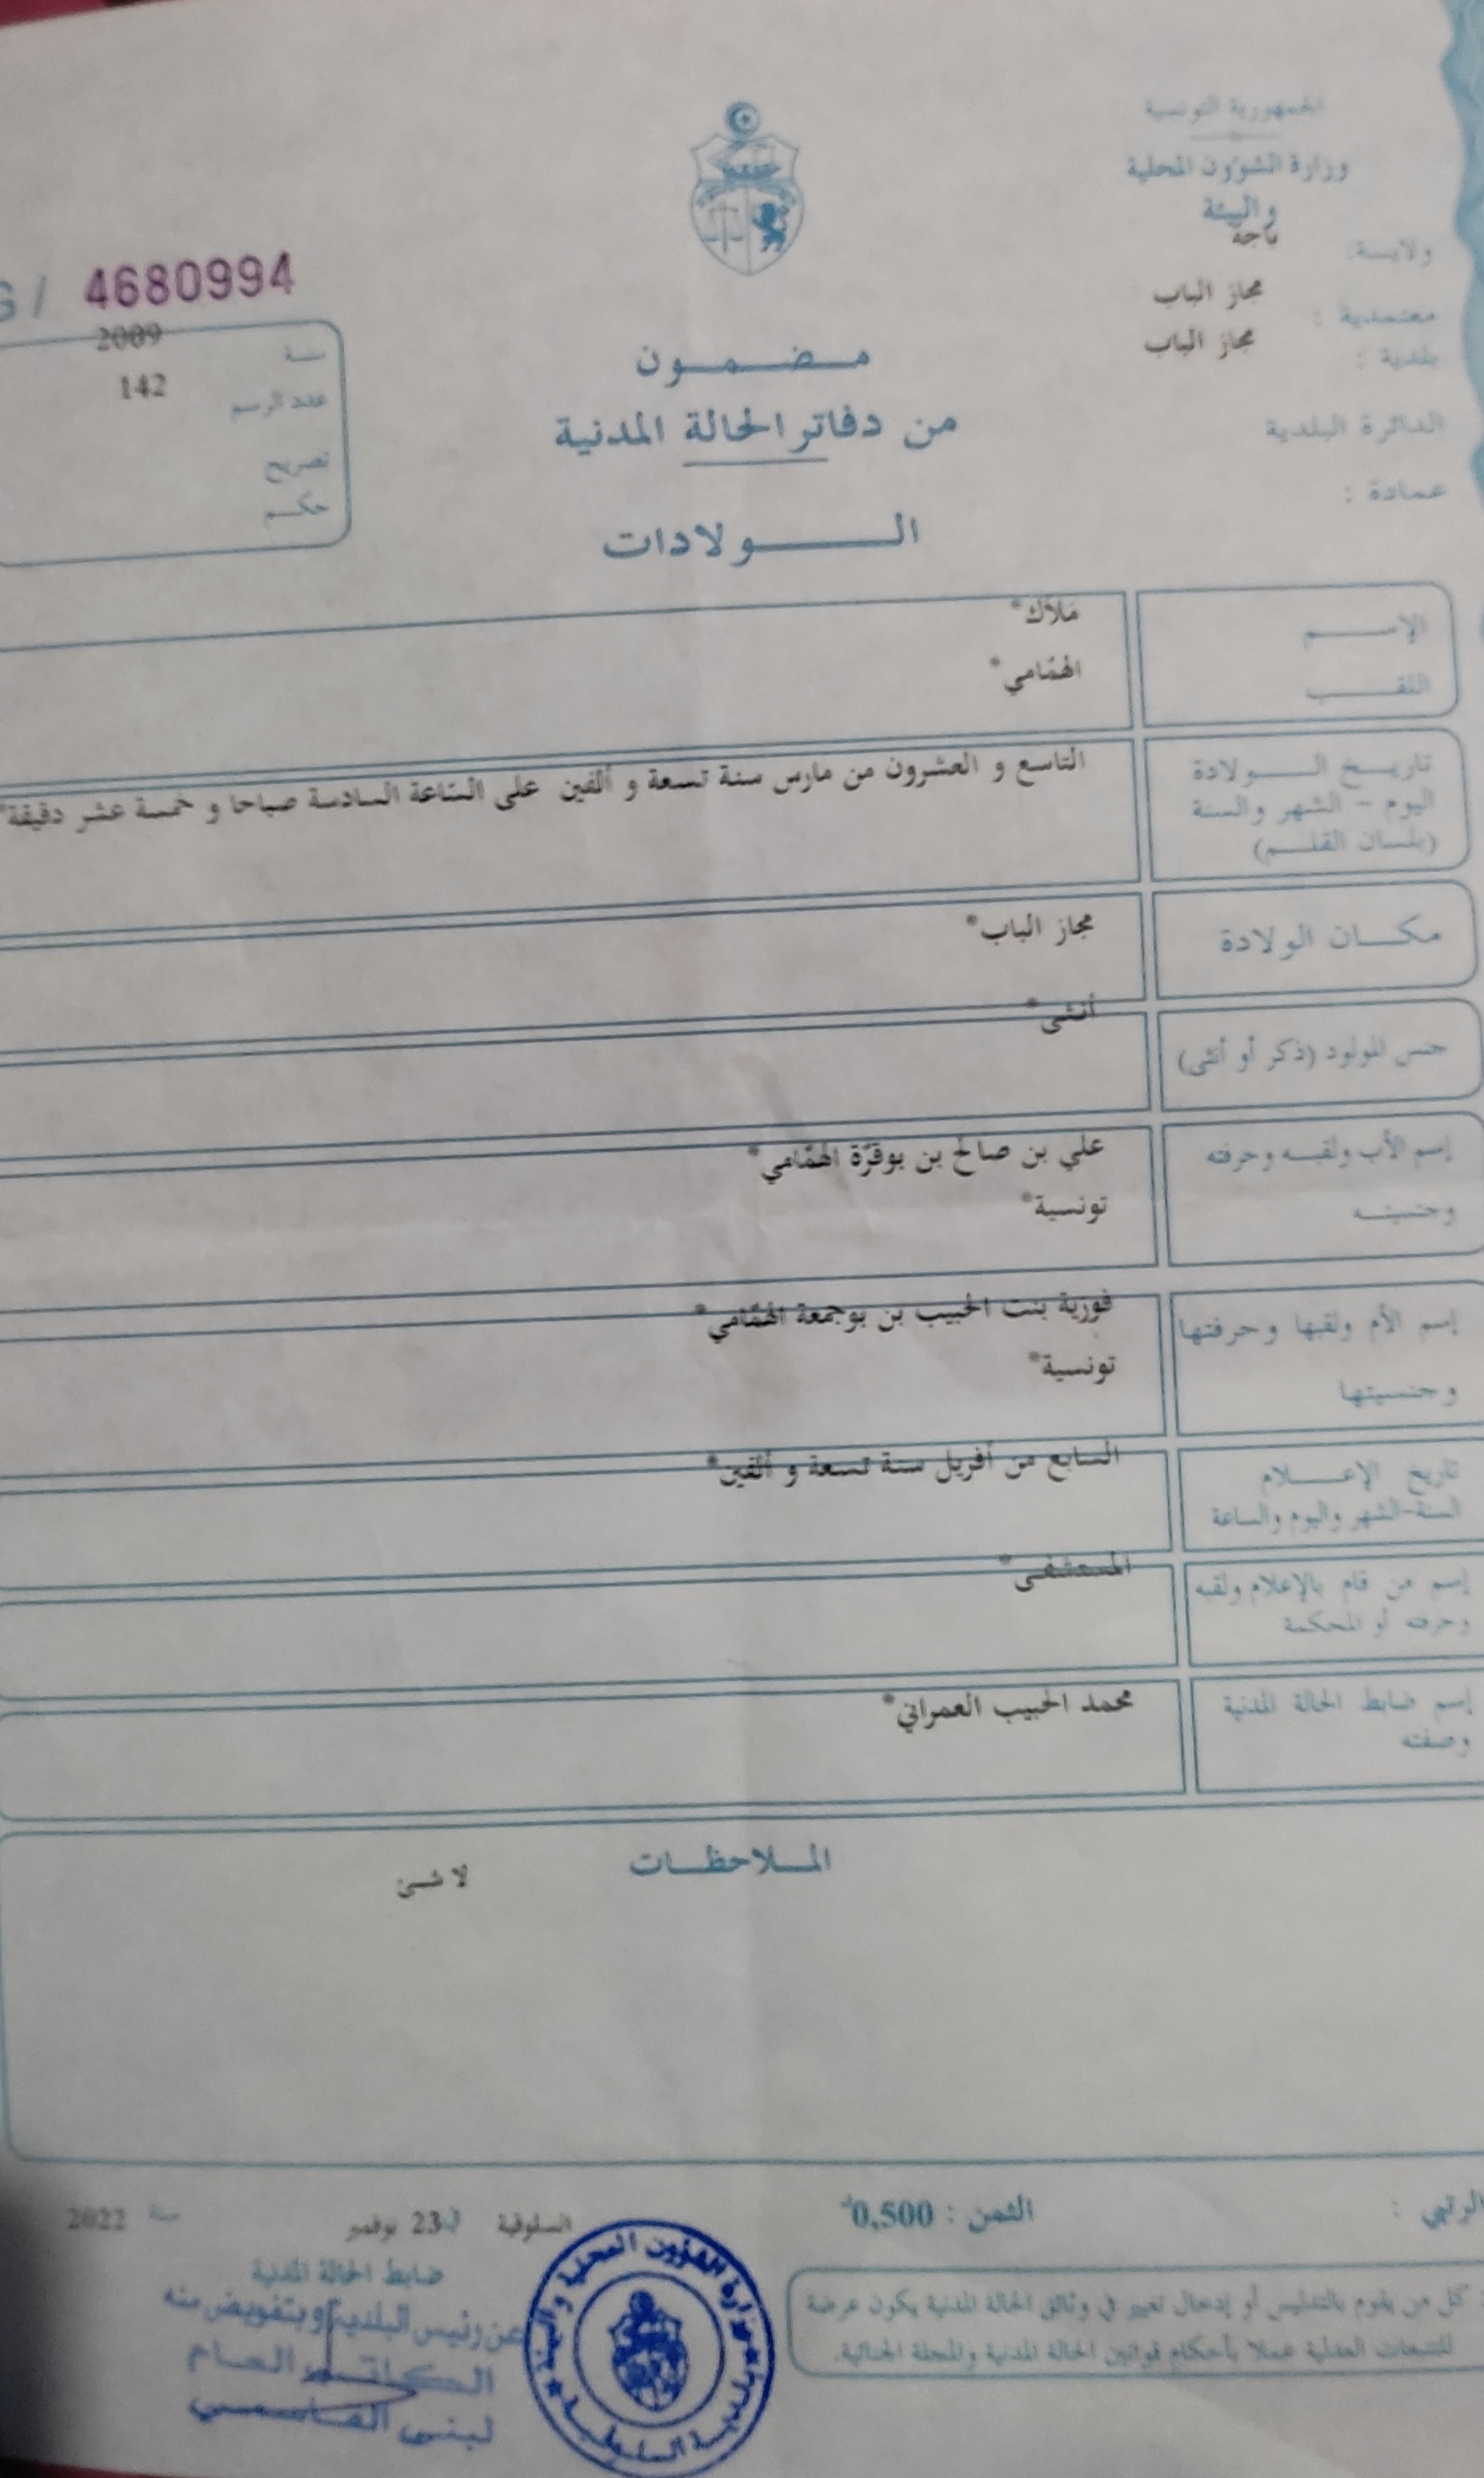 الجمهورية التونسية
وزارة الشؤون المحلية
والبيئة
ولاية: باجة
معتمدية : مجاز الباب
بلدية : مجاز الباب
الدائرة البلدية
عمادة :
G / 4680994
سنة 2009
عدد الرسم 142
تصريح
حكم
مضمون
من دفاتر الحالة المدنية
الولادات
الإسم
مَلاَك*
اللقب
الهمّامي*
تاريخ الولادة
اليوم - الشهر والسنة
(بلسان القلم)
التاسع و العشرون من مارس سنة تسعة و ألفين على السّاعة السادسة صباحا و خمسة عشر دقيقة*
مكان الولادة
مجاز الباب*
جنس المولود (ذكر أو أنثى)
أنثى*
إسم الأب ولقبه وحرفته
علي بن صالح بن بوقرّة الهمّامي*
وجنسيته
تونسية*
إسم الأم ولقبها وحرفتها
فوزية بنت الحبيب بن بوجمعة الهمّامي*
وجنسيتها
تونسية*
تاريخ الإعلام
السنة-الشهر واليوم والساعة
السابع من أفريل سنة تسعة و ألفين*
إسم من قام بالإعلام ولقبه
وحرفته أو المحكمة
المستشفى*
إسم ضابط الحالة المدنية
وصفته
محمد الحبيب العمراني*
الملاحظات
لا شئ
الثمن : 0,500د
السلوقية في 23 نوفمبر سنة 2022
ضابط الحالة المدنية
عن رئيس البلدية وبتفويض منه
الكاتب العام
لبنى القاسمي
وزارة الشؤون المحلية والبيئة
بلدية السلوقية
كل من يقوم بالتدليس أو إدخال تغيير في وثائق الحالة المدنية يكون عرضة
للتتبعات العدلية عملا بأحكام قوانين الحالة المدنية والمجلة الجنائية.